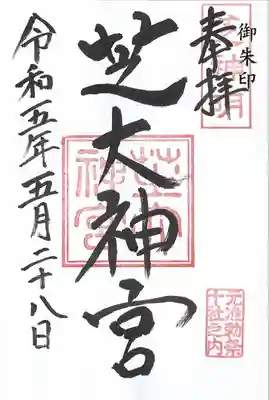 御朱印
奉拝
芝大神宮
令和五年五月二十八日
芝大
神宮
元准勅祭
十社之内